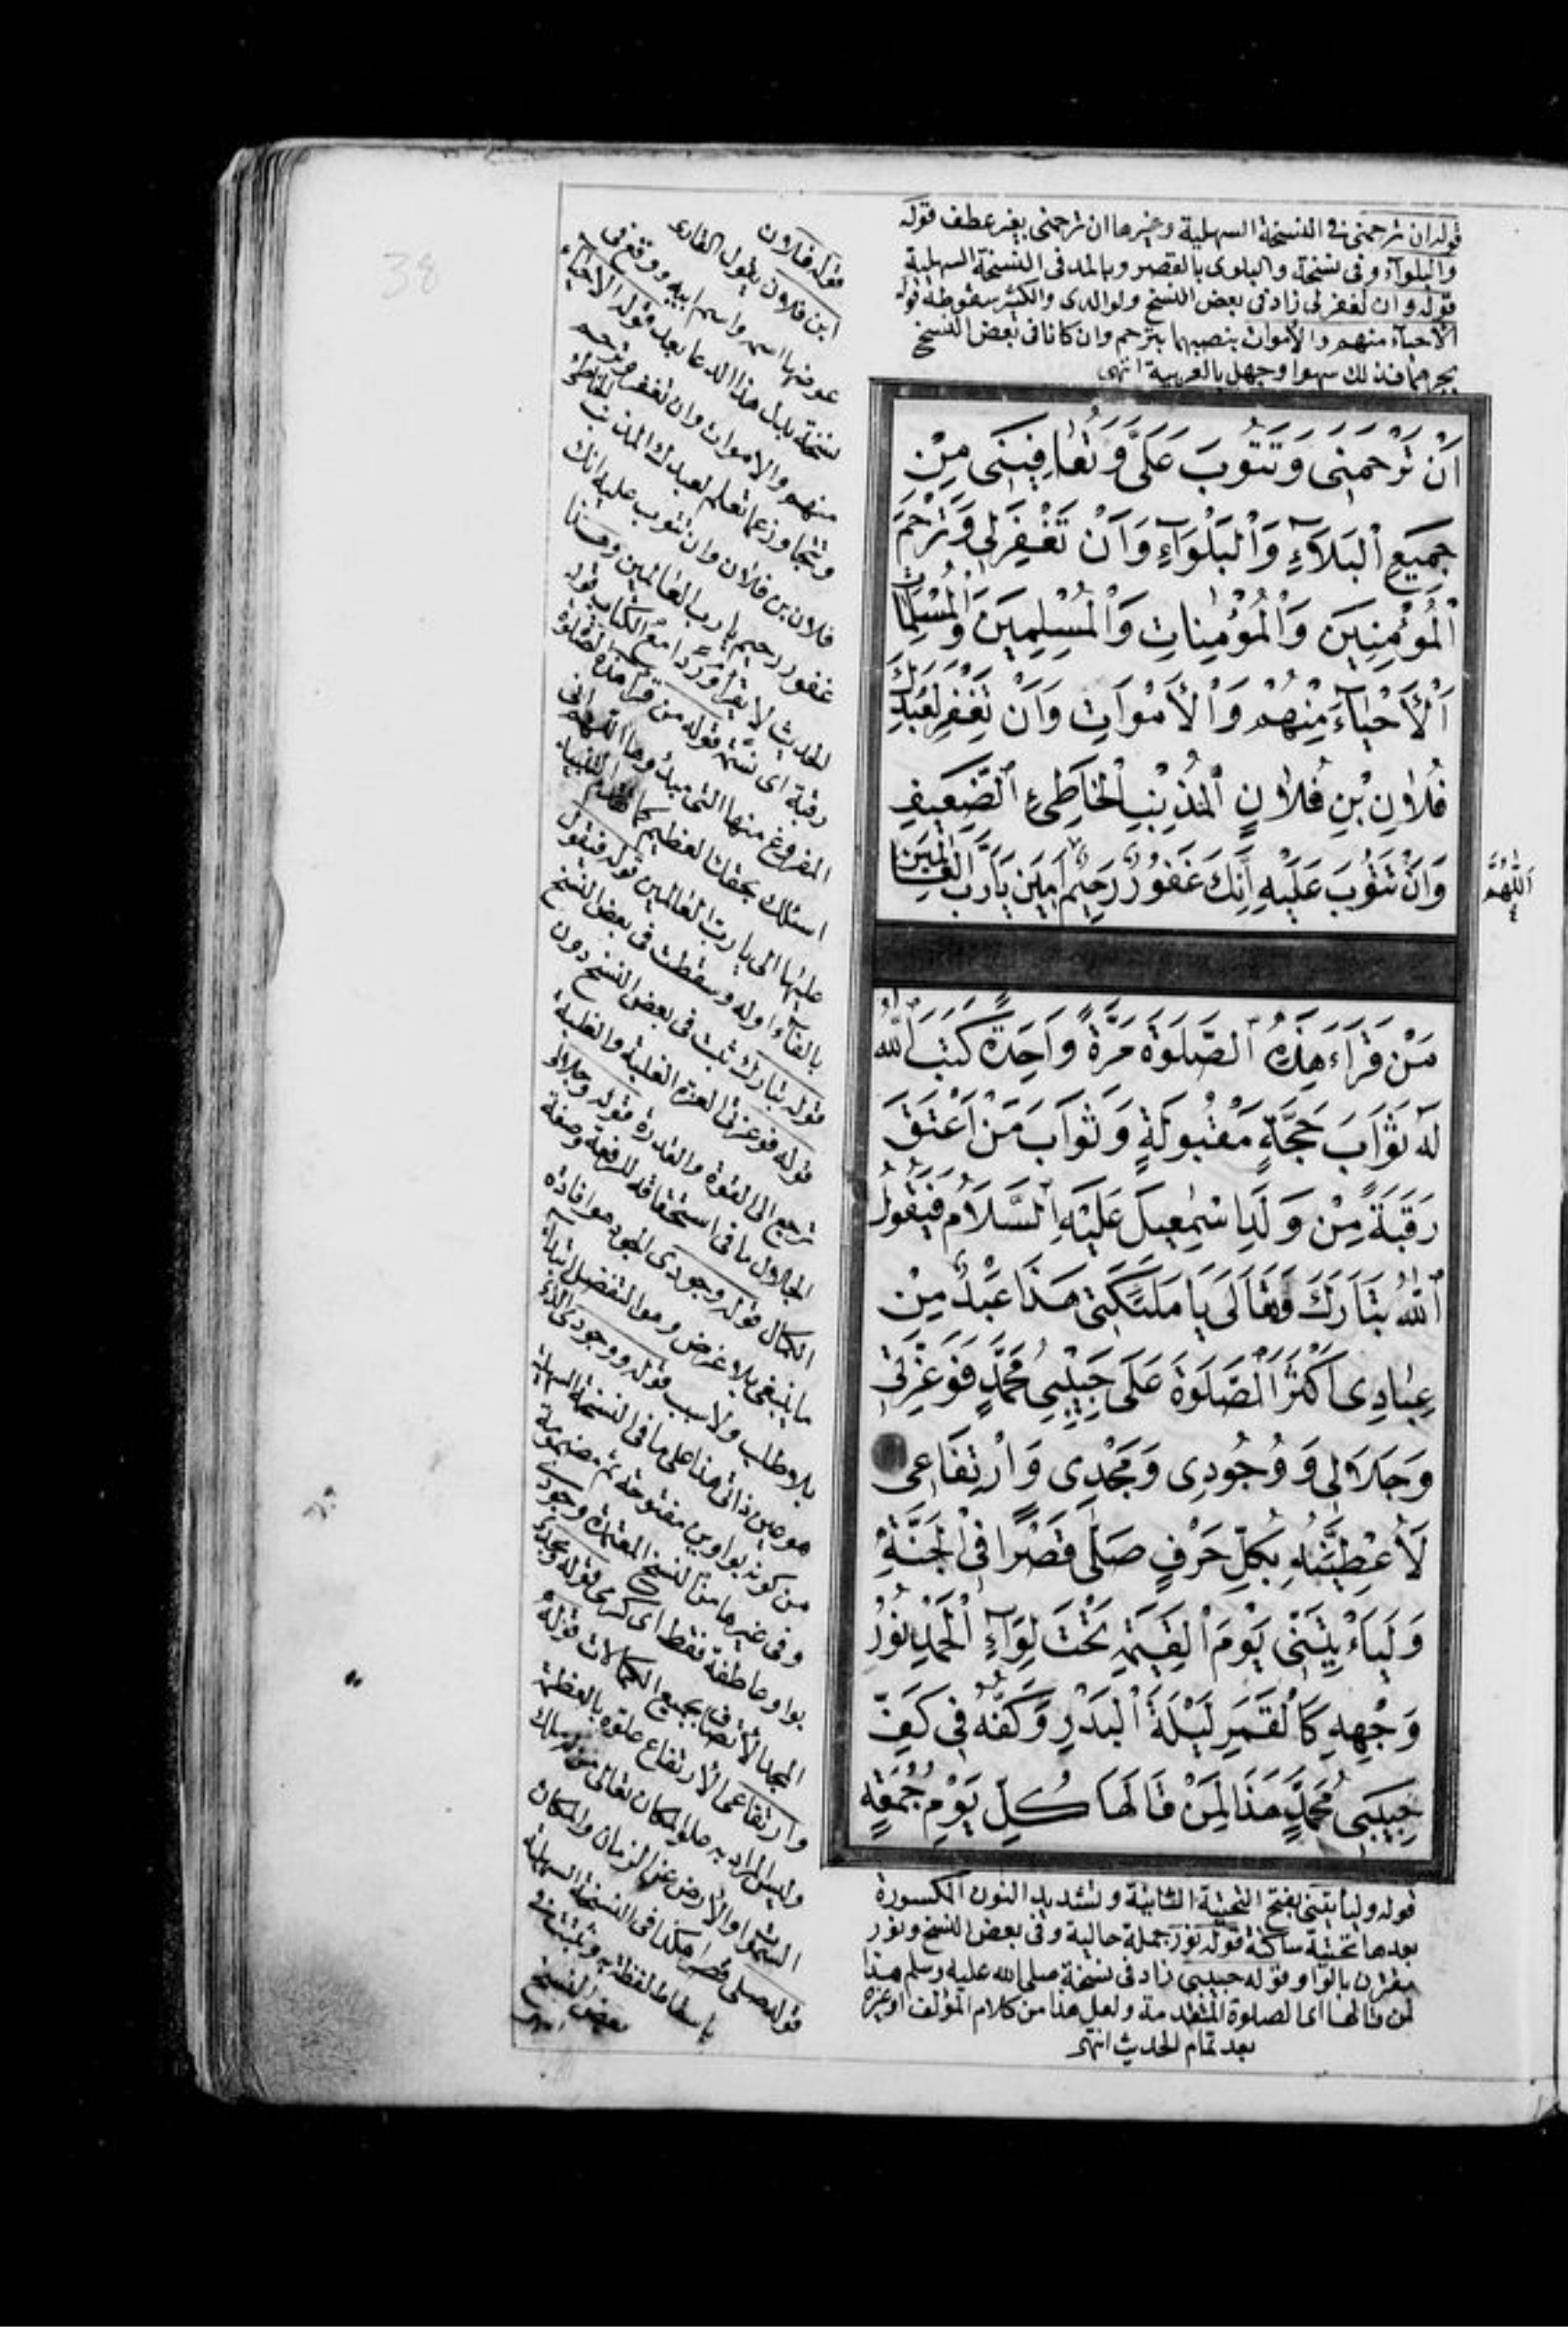 قوله ان ترحمنى فى النسخة السهلية وغيرها ان ترحمنى بغير عطف قوله
والبلوآء وفى نسخة والبلوى بالقصر وبالمد فى النسخة السهلية
قوله وان تغفر لى زاد فى بعض النسخ ولوالدى والكثير سقوطه قوله
الاحيآء منهم والاموات بنصبهما بترحم وان كانا فى بعض النسخ
بجرهما فذلك سهوا وجهل بالعربية انتهى
اَنْ تَرْحَمَنِى وَتَتُوبَ عَلَىَّ وَتُعَافِيَنِى مِنْ
جَمِيعِ الْبَلَآءِ وَالْبَلْوَآءِ وَاَنْ تَغْفِرَ لِى وَتَرْحَمَ
الْمُؤْمِنِينَ وَالْمُؤْمِنَاتِ وَالْمُسْلِمِينَ وَالْمُسْلِمَاتِ
اَلْأَحْيَآءَ مِنْهُمْ وَالْأَمْوَاتِ وَاَنْ تَغْفِرَ لِعَبْدِكَ
فُلَانِ بْنِ فُلَانٍ الْمُذْنِبِ الْخَاطِئِ الضَّعِيفِ
وَاَنْ تَتُوبَ عَلَيْهِ اِنَّكَ غَفُورٌ رَحِيمٌ اٰمِينَ يَارَبَّ الْعَالَمِينَ
اَللّٰهُمَّ
مَنْ قَرَاَ هٰذِهِ الصَّلٰوةَ مَرَّةً وَاحِدَةً كَتَبَ اللّٰهُ
لَهُ ثَوَابَ حَجَّةٍ مَقْبُولَةٍ وَثَوَابَ مَنْ اَعْتَقَ
رَقَبَةً مِنْ وَلَدِ اِسْمٰعِيلَ عَلَيْهِ السَّلَامُ فَيَقُولُ
اللّٰهُ تَبَارَكَ وَتَعَالَى يَا مَلٰئِكَتِى هٰذَا عَبْدٌ مِنْ
عِبَادِى اَكْثَرَ الصَّلٰوةَ عَلَى حَبِيبِى مُحَمَّدٍ فَوَعِزَّتِى
وَجَلَالِى وَوُجُودِى وَمَجْدِى وَارْتِفَاعِى
لَأُعْطِيَنَّهُ بِكُلِّ حَرْفٍ صَلَّى قَصْرًا فِى الْجَنَّةِ
وَلَيَأْتِيَنِّى يَوْمَ الْقِيٰمَةِ تَحْتَ لِوَآءِ الْحَمْدِ نُورُ
وَجْهِهِ كَالْقَمَرِ لَيْلَةَ الْبَدْرِ وَكَفُّهُ فِى كَفِّ
حَبِيبِى مُحَمَّدٍ هٰذَا لِمَنْ قَالَهَا كُلَّ يَوْمِ جُمُعَةٍ
قوله وليأتينى بفتح التحتية الثانية وتشديد النون المكسورة
بعدها تحتية ساكنة قوله نور جملة حالية وفى بعض النسخ ونور
مقترن بالواو قوله حبيبى زاد فى نسخة صلى الله عليه وسلم هذا
لمن قالها اى الصلوة المتقدمة ولعل هذا من كلام المؤلف او غيره
بعد تمام الحديث انتهى
قوله فلان
ابن فلان يقول القارى
عوضها اسمه واسم ابيه ووقع فى
نسخة بدل هذا الدعا بعد قوله الاحيآء
منهم والاموات وان تغفر وترحم
وتتجاوز عما تعلم لعبدك المذنب الخاطئ
فلان بن فلان وان تتوب عليه انك
غفور رحيم يا رب العالمين
المفروغ منها التى مبدؤها اللهم انى
اسئلك بحقك العظيم
عليها الى يا رب العالمين قوله فيقول
بالفآء اوله وسقطت فى بعض النسخ
قوله تبارك ثبت فى بعض النسخ دون
قوله فوعزتى العزة الغلبة
ترجع الى القوة والقدرة قوله وجلالى
الجلال ما فى استحقاقه الرفعة وصفة
الكمال قوله وجودى الجود هو افادة
ما ينبغى بلا عوض وهو التفضل
بلا طلب ولا سبب قوله ووجودى
هو عين ذاتى هذا على ما فى النسخة السهلية
من كونه بواوين مفتوحة ثم مضمومة
وفى غيرها من النسخ المعتمدة وجودى
بواو عاطفة فقط اى كرمى قوله ومجدى
المجد الاتصاف بجميع الكمالات قوله
وارتفاعى الارتفاع علوه بالعظمة
وليس المراد به علو المكان تعالى
السموات والارض عن الزمان والمكان
قوله صلى قصرا هكذا فى النسخة السهلية
باسقاط لفظة به وثبتت فى
بعض النسخ
انتهى
38